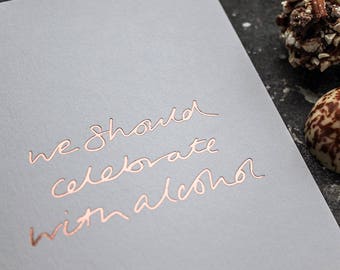 we should
celebrate
with alcohol